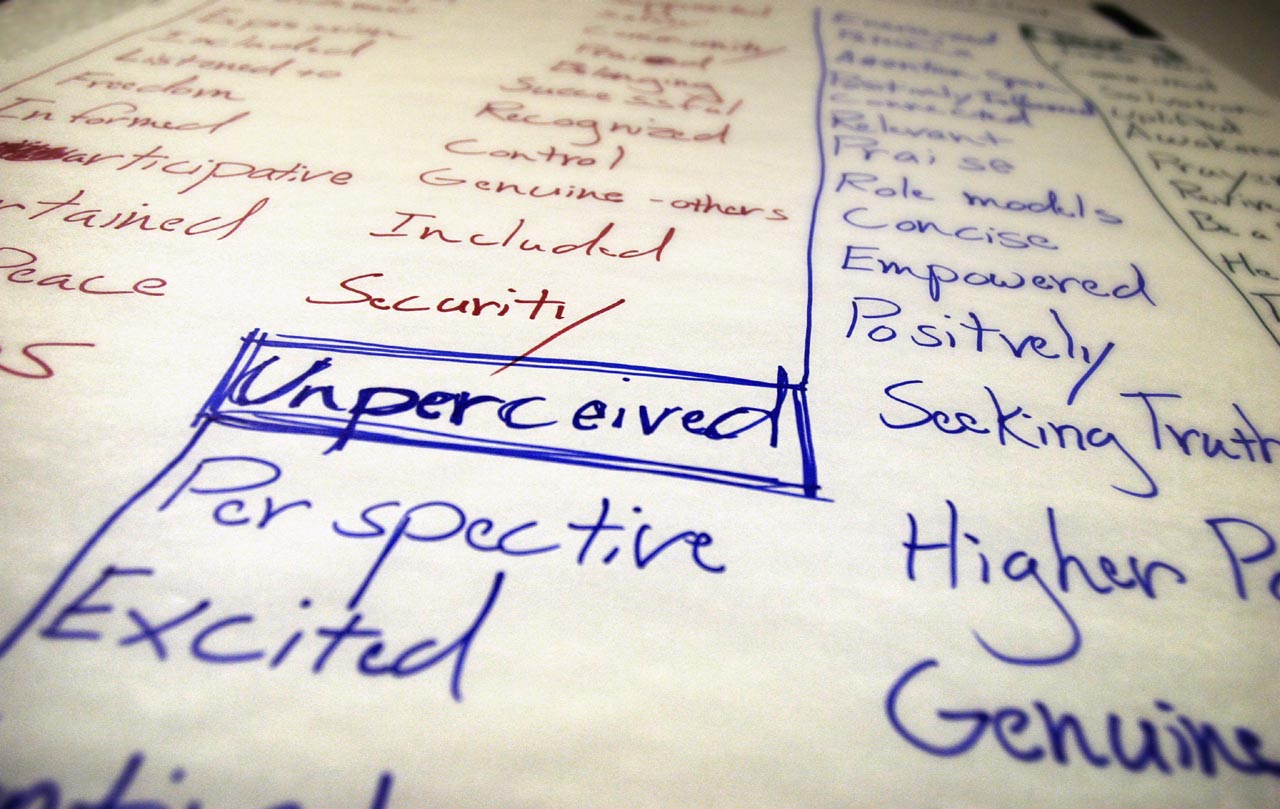 Expression
Included
Listened to
Freedom
Informed
articipative
rtained
Peace
s
Supported
Safety
Community
Praised
Belonging
Successful
Recognized
Control
Genuine - others
Included
Security
Unperceived
Perspective
Excited
Attention span
Positively Influenced
Connected
Relevant
Praise
Role models
Concise
Empowered
Positvely
Seeking Truth
Higher Po
Genuine
Salvation
Uplifted
Awakene
Prayer
Be a
He